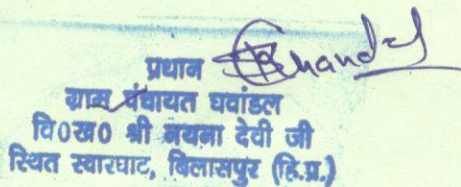 प्रधान
ग्राम पंचायत घवांडल
वि0ख0 श्री नयना देवी जी
स्थित स्वारघाट, बिलासपुर (हि.प्र.)